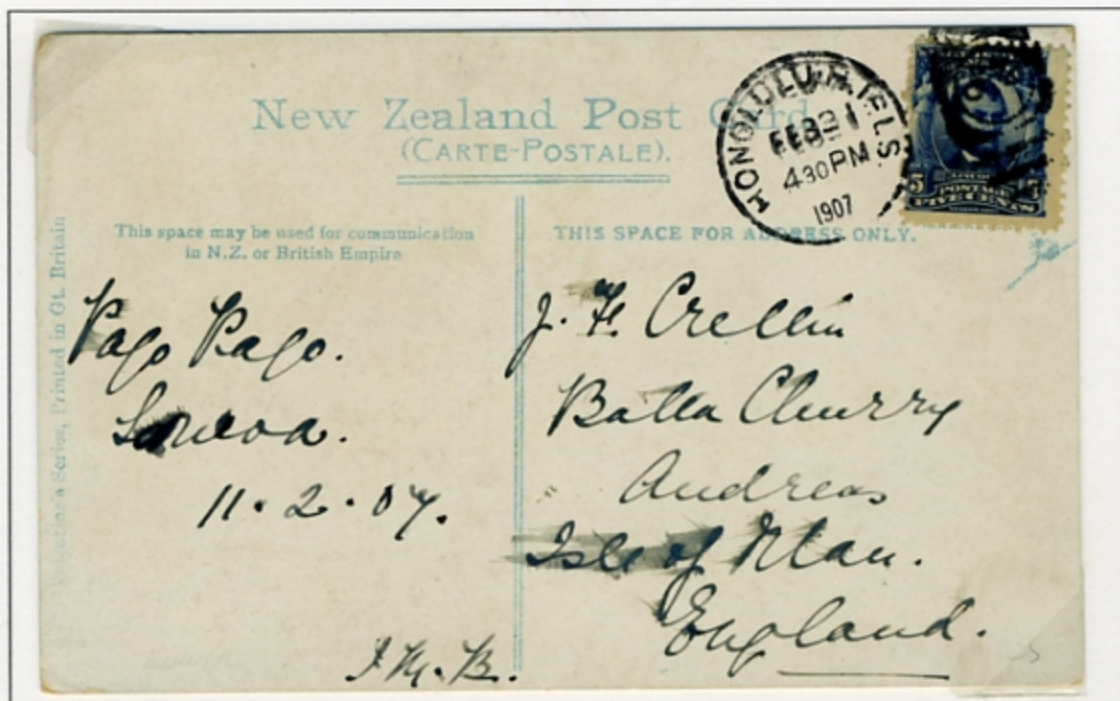 New Zealand Post Card
(CARTE-POSTALE).
HONOLULU
FEB 21
4 30 PM
1907
5
POSTAGE
FIVE CENTS
This space may be used for communication
in N.Z. or British Empire
THIS SPACE FOR ADDRESS ONLY.
Series, Printed in Gt. Britain
Pago Pago.
Samoa.
11.2.07.
J. M. B.
J. F. Crellin
Balla Churry
Andreas
Isle of Man.
England.